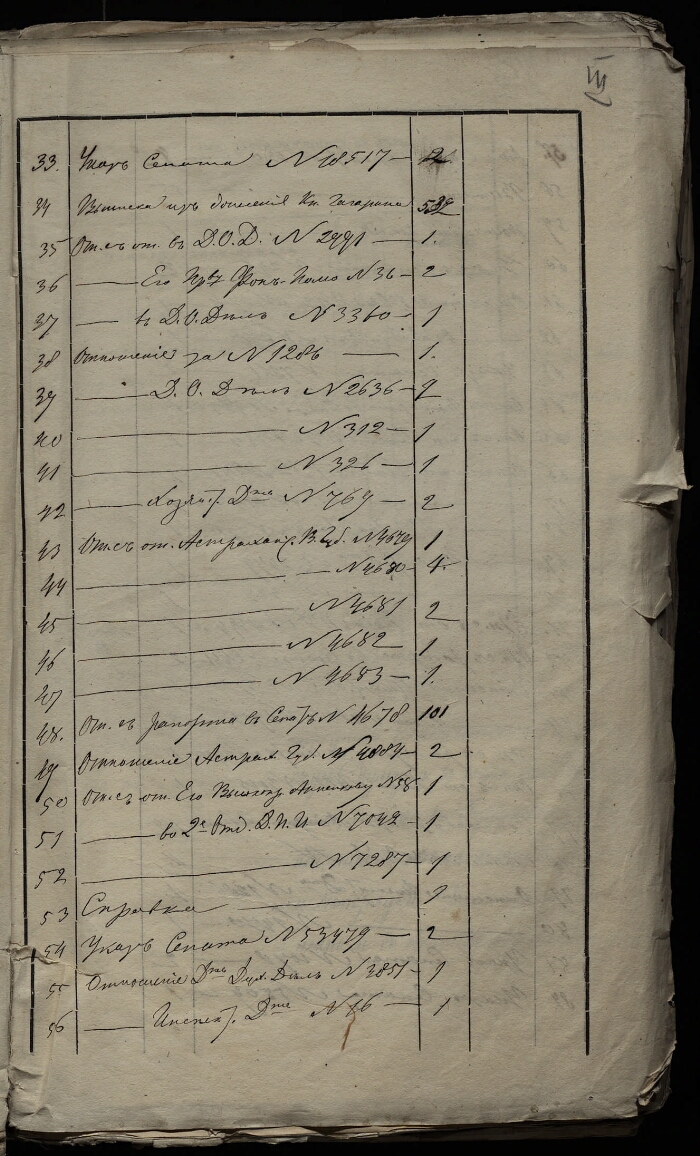 III
33. Указъ Сената N 18517 — 2
34 Выписка изъ донесенія Кн. Гагарина 532
35 От. съ от. въ Д.О.Д. N 2991 — 1.
36 —— Его Прв. Фонъ- N 36 — 2
37 —— въ Д.О.Дѣлъ N 3360 — 1
38 Отношеніе за N 1286 —— 1.
39 —— Д.О. Дѣлъ N 2636 — 2
40 —— N 312 — 1
41 —— N 326 — 1
42 —— Хозяй. Дта N 769 — 2
43 От. съ от. Астрахан. В. Губ. N 4679 1
44 —— N 4680 — 4.
45 —— N 4681 2
46 —— N 4682 1
47 —— N 4683 — 1.
48. От. съ рапорта въ Сенатъ N 4678 101
49 Отношеніе Астрах. Губ. N 4884 — 2
50 От. съ от. Его Высокор. Анненкову N 58 1
51 —— во 2е Отд. Д.П.И N 7042 — 1
52 —— N 7287 — 1
53 Справка —— 1
54 Указъ Сената N 53479 — 2
55 Отношеніе Дта Дух. Дѣлъ N 3851 — 1
56 —— Инспек. Дта N 16 — 1